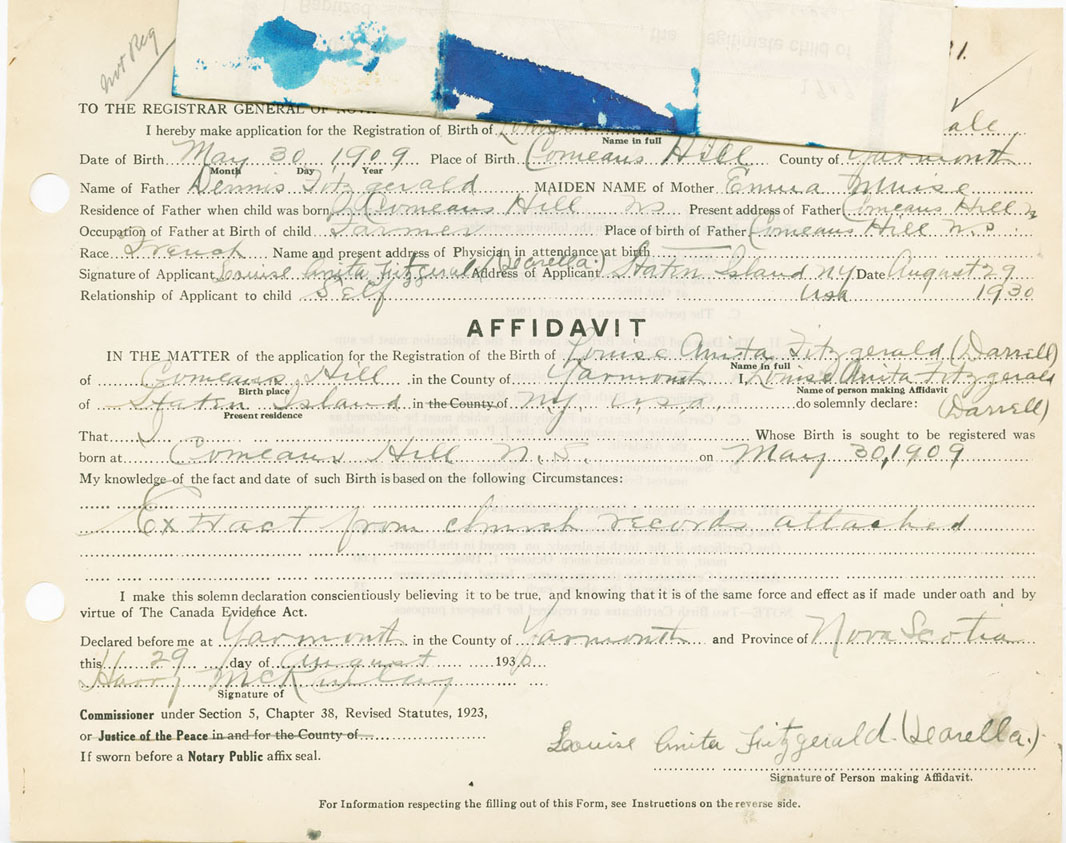 Not Reg
1.
TO THE REGISTRAR GENERAL OF
I hereby make application for the Registration of Birth of
Name in full
Date of Birth May 30, 1909 Place of Birth Comeaus Hill County of Yarmouth
Month Day Year
Name of Father Dennis Fitzgerald MAIDEN NAME of Mother Emma Muise
Residence of Father when child was born Comeaus Hill NS Present address of Father Comeaus Hill N
Occupation of Father at Birth of child Farmer Place of birth of Father Comeaus Hill N.S.
Race French Name and present address of Physician in attendance at birth
Signature of Applicant Louise Anita Fitzgerald (Dearella.) Address of Applicant Staten Island NY Date August 29
Relationship of Applicant to child Self USA 1930
AFFIDAVIT
IN THE MATTER of the application for the Registration of the Birth of Louise Anita Fitzgerald (Darrell)
Name in full
of Comeaus Hill in the County of Yarmouth I, Louise Anita Fitzgerald
Birth place Name of person making Affidavit
of Staten Island in the County of N.Y. U.S.A. do solemnly declare: (Darrell)
Present residence
That I Whose Birth is sought to be registered was
born at Comeaus Hill N.S. on May 30, 1909
My knowledge of the fact and date of such Birth is based on the following Circumstances:
Extract from church records attached
I make this solemn declaration conscientiously believing it to be true, and knowing that it is of the same force and effect as if made under oath and by
virtue of The Canada Evidence Act.
Declared before me at Yarmouth in the County of Yarmouth and Province of Nova Scotia
this 29 day of August 1930
Harry
Signature of
Commissioner under Section 5, Chapter 38, Revised Statutes, 1923,
or Justice of the Peace in and for the County of
If sworn before a Notary Public affix seal.
Louise Anita Fitzgerald (Dearella.)
Signature of Person making Affidavit.
For Information respecting the filling out of this Form, see Instructions on the reverse side.